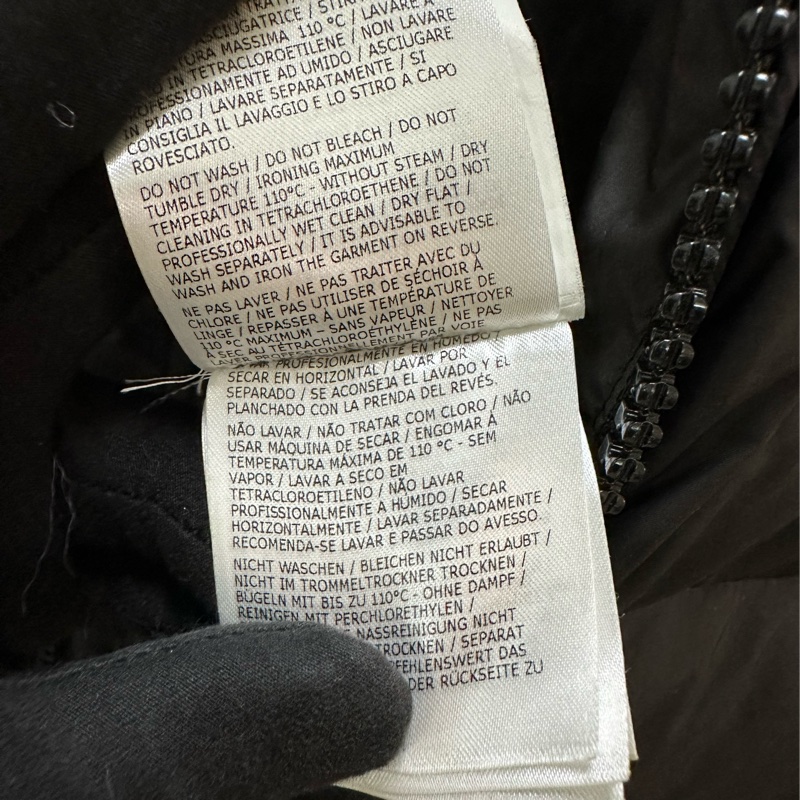 ASCIUGATRICE / STIRO
MASSIMA 110 °C / LAVARE A
IN TETRACLOROETILENE / NON LAVARE
PROFESSIONAMENTE AD UMIDO / ASCIUGARE
IN PIANO / LAVARE SEPARATAMENTE / SI
CONSIGLIA IL LAVAGGIO E LO STIRO A CAPO
ROVESCIATO.
DO NOT WASH / DO NOT BLEACH / DO NOT
TUMBLE DRY / IRONING MAXIMUM
TEMPERATURE 110°C - WITHOUT STEAM / DRY
CLEANING IN TETRACHLOROETHENE / DO NOT
PROFESSIONALLY WET CLEAN / DRY FLAT /
WASH SEPARATELY / IT IS ADVISABLE TO
WASH AND IRON THE GARMENT ON REVERSE.
NE PAS LAVER / NE PAS TRAITER AVEC DU
CHLORE / NE PAS UTILISER DE SÉCHOIR À
LINGE / REPASSER À UNE TEMPÉRATURE DE
110 °C MAXIMUM – SANS VAPEUR / NETTOYER
À SEC AU TÉTRACHLOROÉTHYLÈNE / NE PAS
LAVER PROFESSIONNELLEMENT PAR VOIE
PROFESIONALMENTE EN HÚMEDO /
SECAR EN HORIZONTAL / LAVAR POR
SEPARADO / SE ACONSEJA EL LAVADO Y EL
PLANCHADO CON LA PRENDA DEL REVÉS.
NÃO LAVAR / NÃO TRATAR COM CLORO / NÃO
USAR MÁQUINA DE SECAR / ENGOMAR À
TEMPERATURA MÁXIMA DE 110 °C - SEM
VAPOR / LAVAR A SECO EM
TETRACLOROETILENO / NÃO LAVAR
PROFISSIONALMENTE A HÚMIDO / SECAR
HORIZONTALMENTE / LAVAR SEPARADAMENTE /
RECOMENDA-SE LAVAR E PASSAR DO AVESSO.
NICHT WASCHEN / BLEICHEN NICHT ERLAUBT /
NICHT IM TROMMELTROCKNER TROCKNEN /
BÜGELN MIT BIS ZU 110°C - OHNE DAMPF /
REINIGEN MIT PERCHLORETHYLEN /
NASSREINIGUNG NICHT
TROCKNEN / SEPARAT
DAS
DER RÜCKSEITE ZU